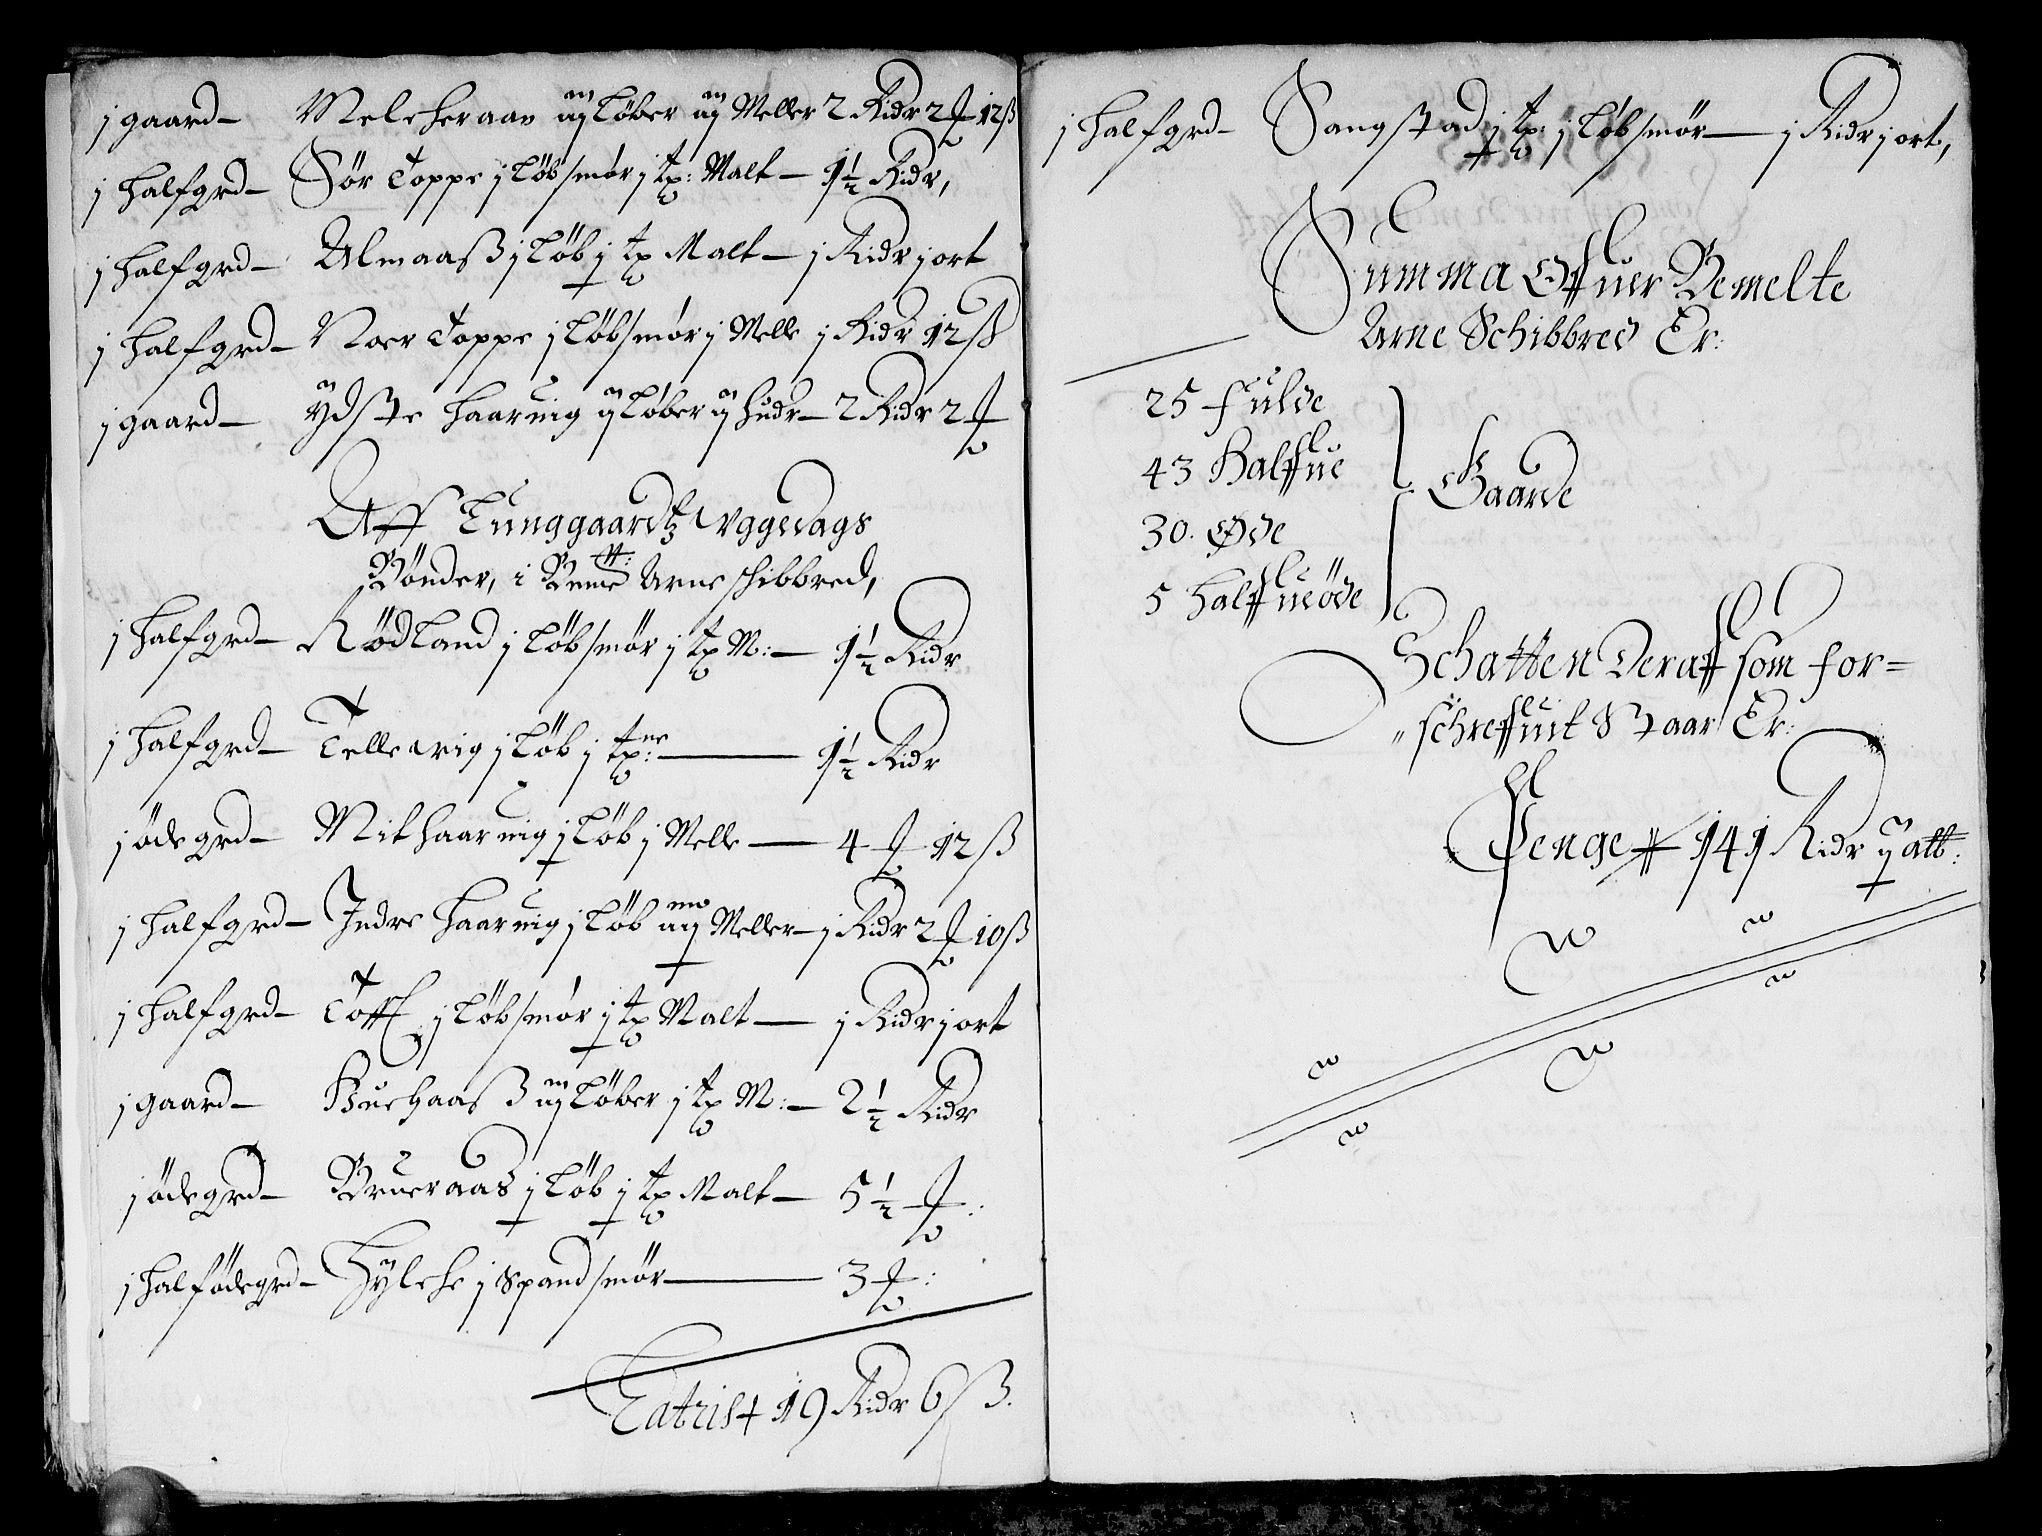 j gaard – Melcheraan ij Løber ij Meller 2 Ridr 2 ₰ 12 ß
j halfgrd – Sör Toppe j Løb smør j tp: Malt – 1½ Ridr,
j halfgrd – Almaaß j Løb j tp Malt – j Ridr j ort
j halfgrd – Noer Toppe j Løb smør j Melle j Ridr 12 ß
j gaard – ÿdste Haarvig ij Løber ij hudr – 2 Ridr 2 ₰
Aff Lunggaardtz Uggedags
Bönder, i Bemte Arne schibbred,
j halfgrd – Rödland j Løb smør j tp M: – 1½ Ridr
j halfgrd – Tellevig j Løb j tp:ne – 1½ Ridr
j öde grd – Mithaarvig j Løb j Melle – 4 ₰ 12 ß
j halfgrd – Indre haarvig j Løb iij Meller – j Ridr 2 ₰ 10 ß
j halfgrd – Toff j Løb smør j tp Malt – j Ridr j ort
j gaard – Buchaas ij Løber j tp M: – 2½ Ridr
j öde grd – Brueraas j Løb j tp Malt – 5½ ₰:
j half öde grd – Hÿlche j Spand smør – 3 ₰:
Latris 19 Ridr 6 ß.
j halfgrd – Sangstad j tp: j Løb smør – j Ridr j ort,
Summa Offuer Bemelte
Arne Schibbred Er:
25 Fulde
43 Halffue
Gaarde
30. Øde
5 halffueöde
Schatten Deraff som for=
"schreffuit Staar Er:
Penge 141 Ridr ij alb: